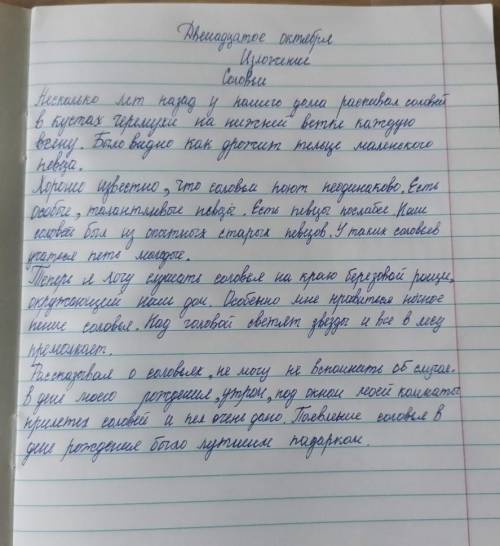 Двенадцатое октября
Изложение
Соловьи
Несколько лет назад у нашего дома распивал соловей
в кустах черемухи на нижней ветке каждую
весну. Было видно как дрожит тельце маленького
певца.
Хорошо известно, что соловьи поют неодинаково. Есть
особые, талантливые певцы. Есть певцы послабее. Наш
соловей был из опытных старых певцов. У таких соловьев
учатся петь молодые.
Теперь я могу слушать соловья на краю березовой рощи,
окружающий наш дом. Особенно мне нравиться ночное
пение соловья. Над головой светят звёзды и все в лесу
промолкает.
Рассказывая о соловьях, не могу не вспомнить об случае.
В день моего рождения, утром, под окном моей комнаты
прилетел соловей и пел очень дано. Появление соловья в
день рождения было лутшим падарком.